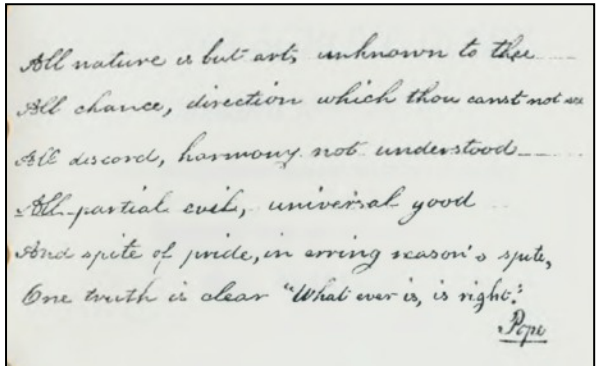 All nature is but art, unknown to thee
All chance, direction which thou canst not see
All discord, harmony not understood
All partial evil, universal good
And spite of pride, in erring reason's spite,
One truth is clear "What ever is, is right."
Pope